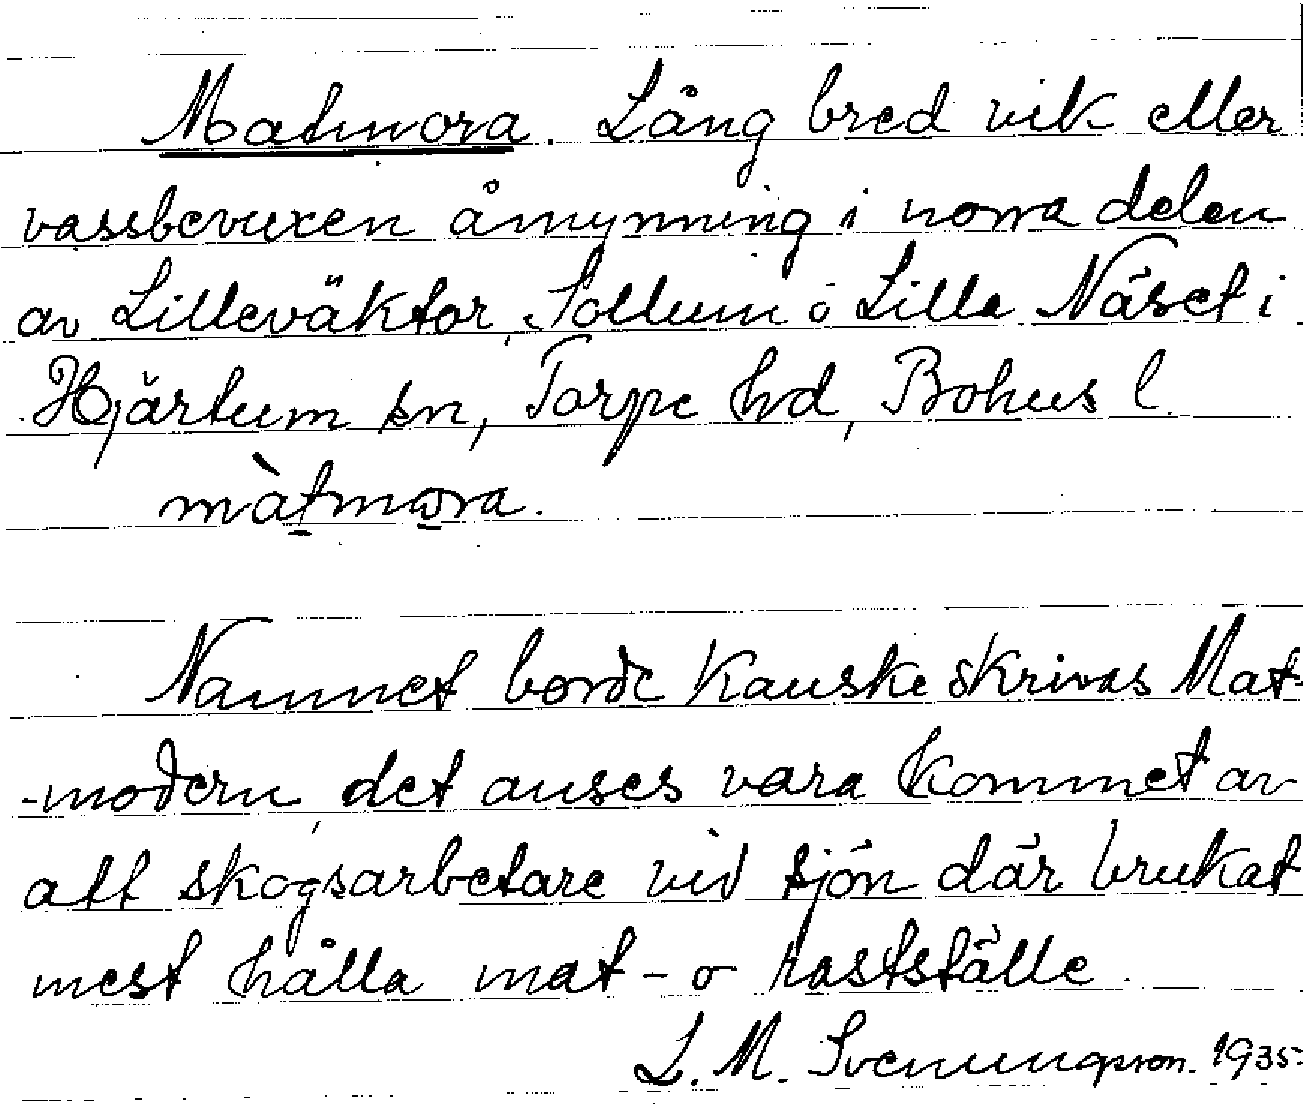 Matmora. Lång bred vik eller
vassbevuxen åmynning i norra delen
av Lilleväktor, Sollum o Lilla Näset i
Hjärtum sn, Torpe hd, Bohus l.
màtmωra.
Namnet borde kanske skrivas Mat-
-modern, det anses vara kommet av
att skogsarbetare vid sjön där brukat
mest hålla mat- o rastställe.
L. M. Svenungsson. 1935